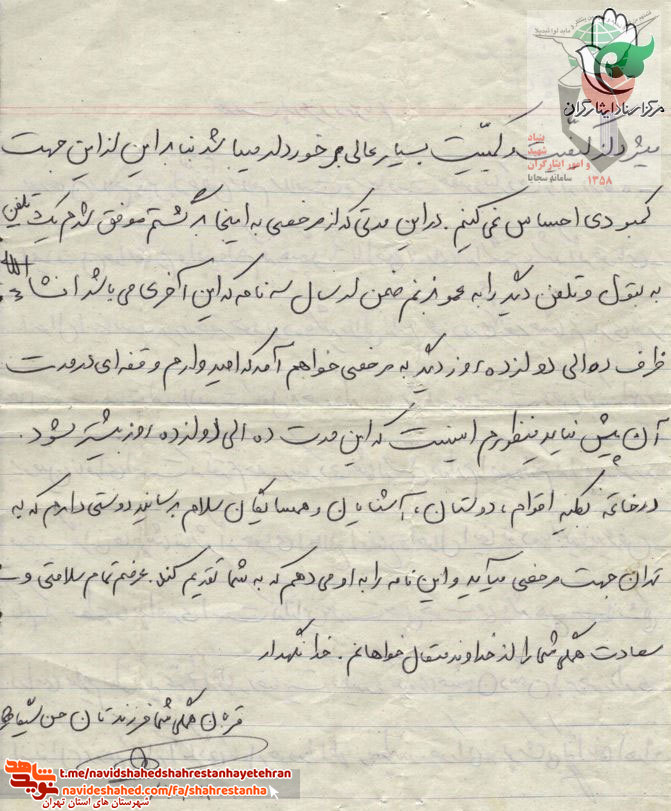 مرکز اسناد ایثارگران
بنیاد
شهید
و امور ایثارگران
سامانه سجایا
۱۳۵۸
کیفیت و کمیّیت بسیار عالی برخوردار میباشد بنابراین از این جهت
کمبودی احساس نمی کنیم. در این مدتی که از مرخصی به اینجا برگشتم موفق شدم یک تلفن
به بتول و تلفن دیگر را به عمو بزنم ضمن ارسال سه نامه که این آخری می باشد انشاءالله
ظرف ده الی دوازده روز دیگر به مرخصی خواهم آمد که امیدوارم وقفه ای در مدت
آن پیش نیاید منظورم اینیت که این مدت ده الی دوازده روز بیشتر نشود.
در خاتمه بکلیه اقوام، دوستان، آشنایان و همسایگان سلام برسانید دوستی دارم که به
تهران جهت مرخصی میآید و این نامه را به او می دهم که به شما تقدیم کند. عرضم تمام سلامتی و
سعادت همگی شما را از خداوند متعال خواهانم. خدانگهدار
قربان همگی شما فرزندتان حسن
نوید شاهد
t.me/navidshahedshahrestanhayetehran
navidshahed.com/fa/shahrestanha
شهرستان های استان تهران